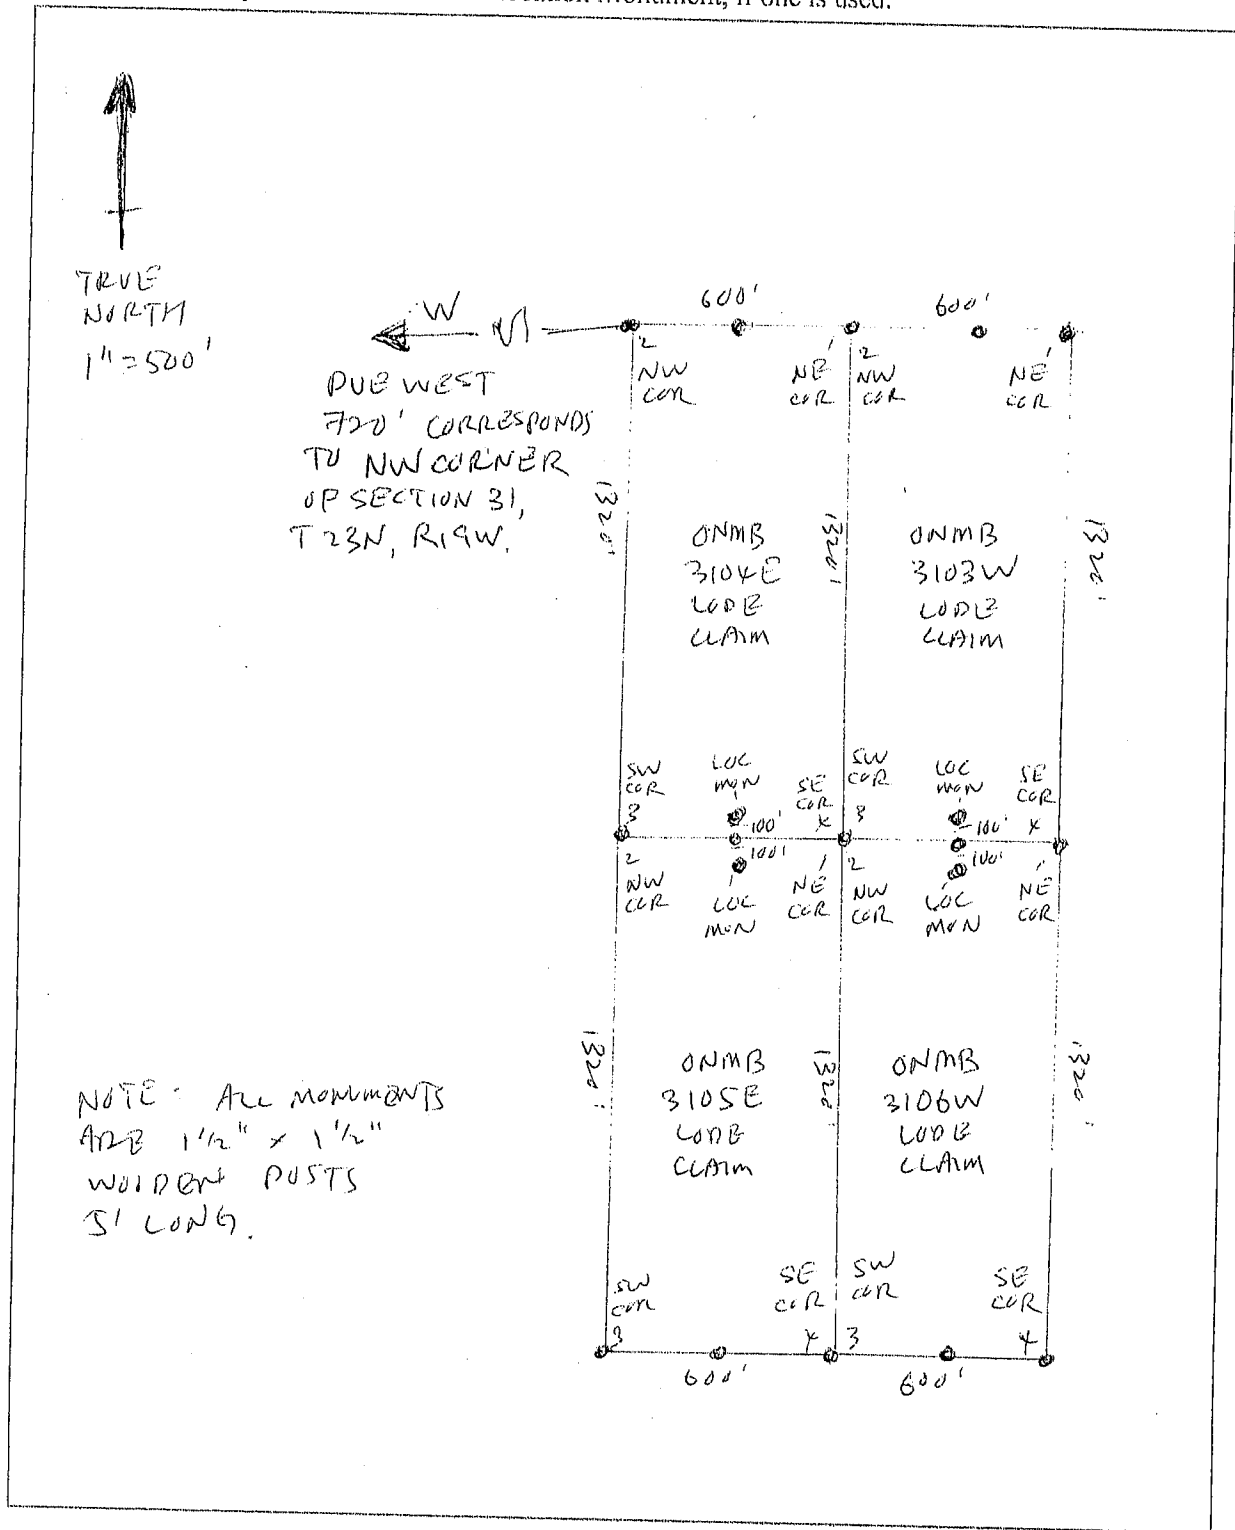 Monument, if one is used.
TRUE
NORTH
1" = 500'
W
DUE WEST
720' CORRESPONDS
TO NW CORNER
OF SECTION 31,
T23N, R19W.
600'
600'
2
NW
COR
1
NE
COR
2
NW
COR
1
NE
COR
1320'
1320'
1320'
ONMB
3104E
LODE
CLAIM
ONMB
3103W
LODE
CLAIM
SW
COR
3
LOC
MON
SE
COR
4
SW
COR
3
LOC
MON
SE
COR
4
100'
100'
100'
100'
2
NW
COR
LOC
MON
1
NE
COR
2
NW
COR
LOC
MON
1
NE
COR
1320'
1320'
1320'
ONMB
3105E
LODE
CLAIM
ONMB
3106W
LODE
CLAIM
NOTE: ALL MONUMENTS
ARE 1 1/2" x 1 1/2"
WOODEN POSTS
5' LONG.
SW
COR
3
SE
COR
4
SW
COR
3
SE
COR
4
600'
600'